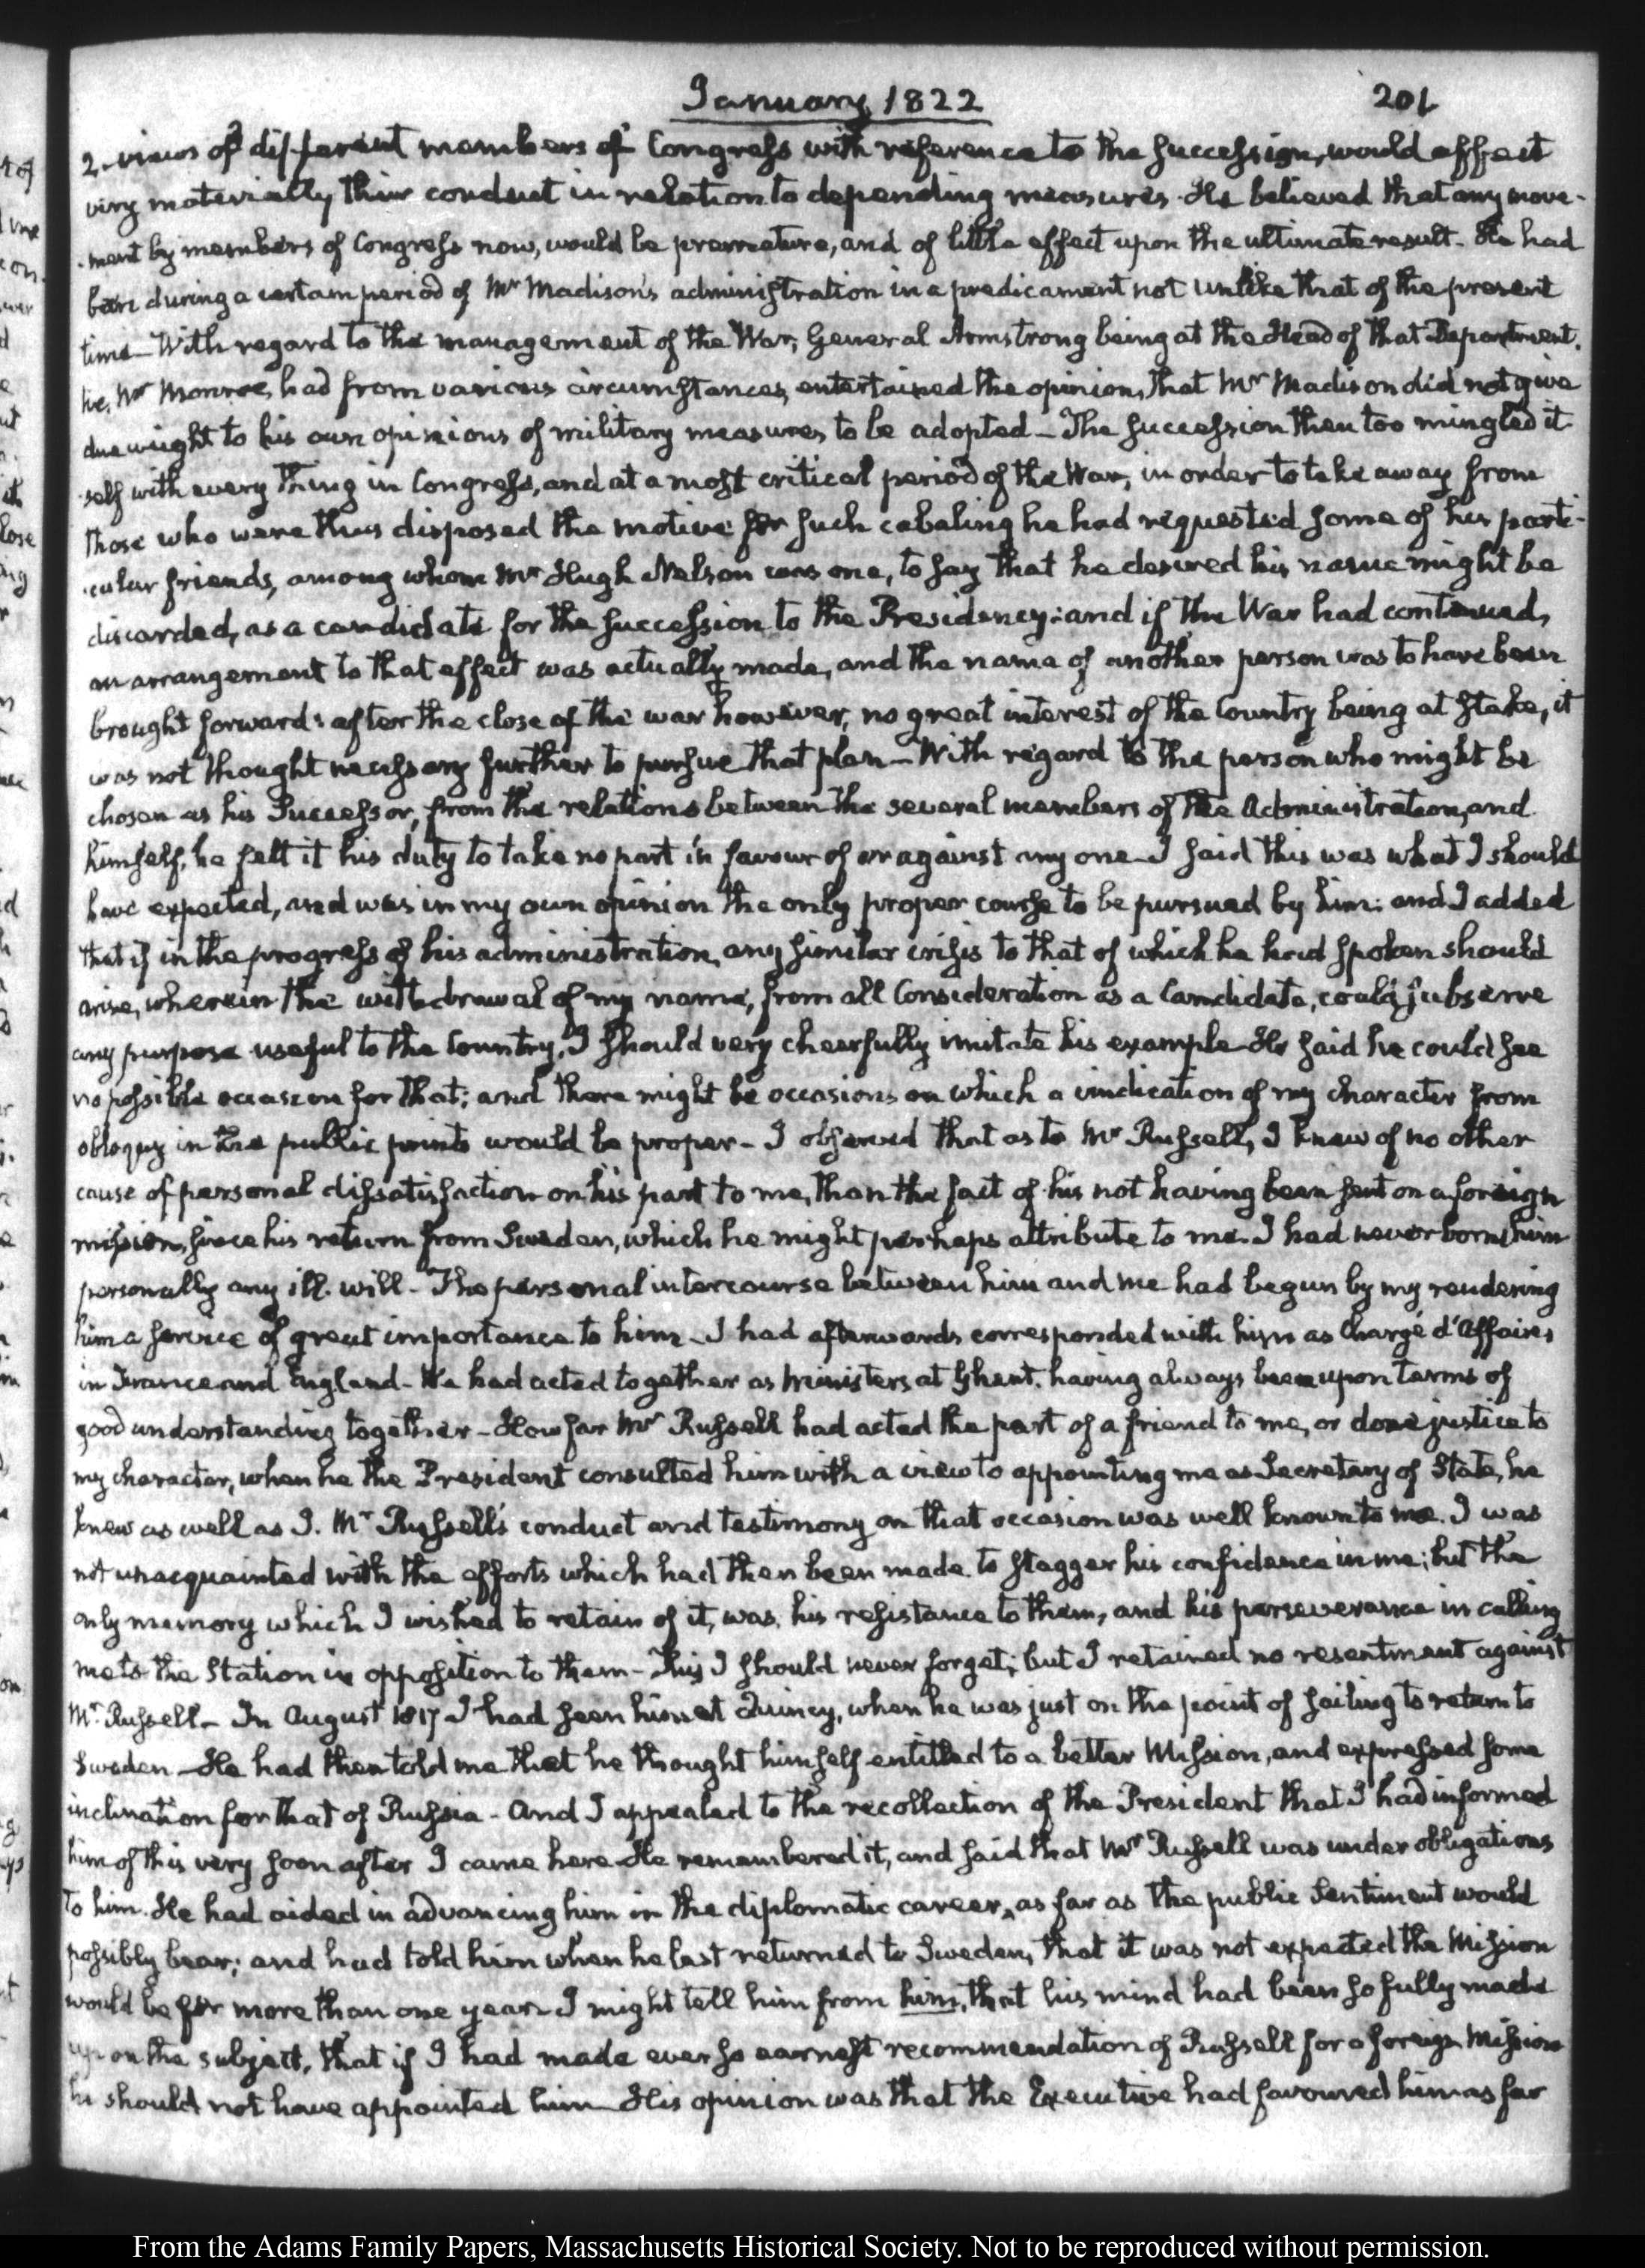 January 1822
201
2. views of different members of Congress with reference to the succession, would affect
very materially their conduct in relation to depending measures. He believed that any move-
-ment by members of Congress now, would be premature, and of little effect upon the ultimate result. He had
been during a certain period of Mr Madison's administration in a predicament not unlike that of the present
time— With regard to the management of the War, General Armstrong being at the Head of that Department.
he, Mr Monroe, had from various circumstances, entertained the opinion, that Mr Madison did not give
due weight to his own opinions of military measures, to be adopted— The succession then too mingled it
-self with every thing in Congress, and at a most critical period of the War, in order to take away from
those who were thus disposed the motive for such cabaling he had requested some of his parti-
-cular friends, among whom Mr Hugh Nelson was one, to say that he desired his name might be
discarded, as a candidate for the succession to the Presidency: and if the War had continued,
an arrangement to that effect was actually made, and the name of another person was to have been
brought forward: after the close of the war however, no great interest of the Country being at stake, it
was not thought necessary further to pursue that plan— With regard to the person who might be
chosen as his Successor, from the relations between the several members of the Administration, and
himself, he felt it his duty to take no part in favour of or against any one— I said this was what I should
have expected, and was in my own opinion the only proper course to be pursued by him: and I added
that if in the progress of his administration, any similar crisis to that of which he had spoken should
arise, wherein the withdrawal of my name, from all Consideration as a Candidate, could subserve
any purpose useful to the Country, I should very cheerfully imitate his example— He said he could see
no possible occasion for that; and there might be occasions on which a vindication of my character from
obloquy in the public prints would be proper— I observed that as to Mr Russell, I knew of no other
cause of personal dissatisfaction on his part to me, than the fact of his not having been sent on a foreign
mission, since his return from Sweden, which he might perhaps attribute to me. I had never borne him
personally any ill-will— The personal intercourse between him and me had begun by my rendering
him a service of great importance to him— I had afterwards corresponded with him as Chargé d'Affaires
in France and England— We had acted together as Ministers at Ghent. having always been upon terms of
good understanding together— How far Mr Russell had acted the part of a friend to me, or done justice to
my character, when he the President consulted him with a view to appointing me as Secretary of State, he
knew as well as I. Mr Russell's conduct and testimony on that occasion was well known to me. I was
not unacquainted with the efforts which had then been made to stagger his confidence in me; but the
only memory which I wished to retain of it, was, his resistance to them, and his perseverance in calling
me to the Station in opposition to them— This I should never forget; but I retained no resentment against
Mr Russell— In August 1817 I had seen him at Quincy, when he was just on the point of sailing to return to
Sweden— He had then told me that he thought himself entitled to a better Mission, and expressed some
inclination for that of Russia— And I appealed to the recollection of the President that I had informed
him of this very soon after I came here— He remembered it, and said that Mr Russell was under obligations
to him. He had aided in advancing him in the diplomatic career, as far as the public sentiment would
possibly bear; and had told him when he last returned to Sweden, that it was not expected the Mission
would be for more than one year— I might tell him from him, that his mind had been so fully made
up on the subject, that if I had made ever so earnest recommendation of Russell for a foreign Mission
he should not have appointed him— His opinion was that the Executive had favoured him as far
From the Adams Family Papers, Massachusetts Historical Society. Not to be reproduced without permission.